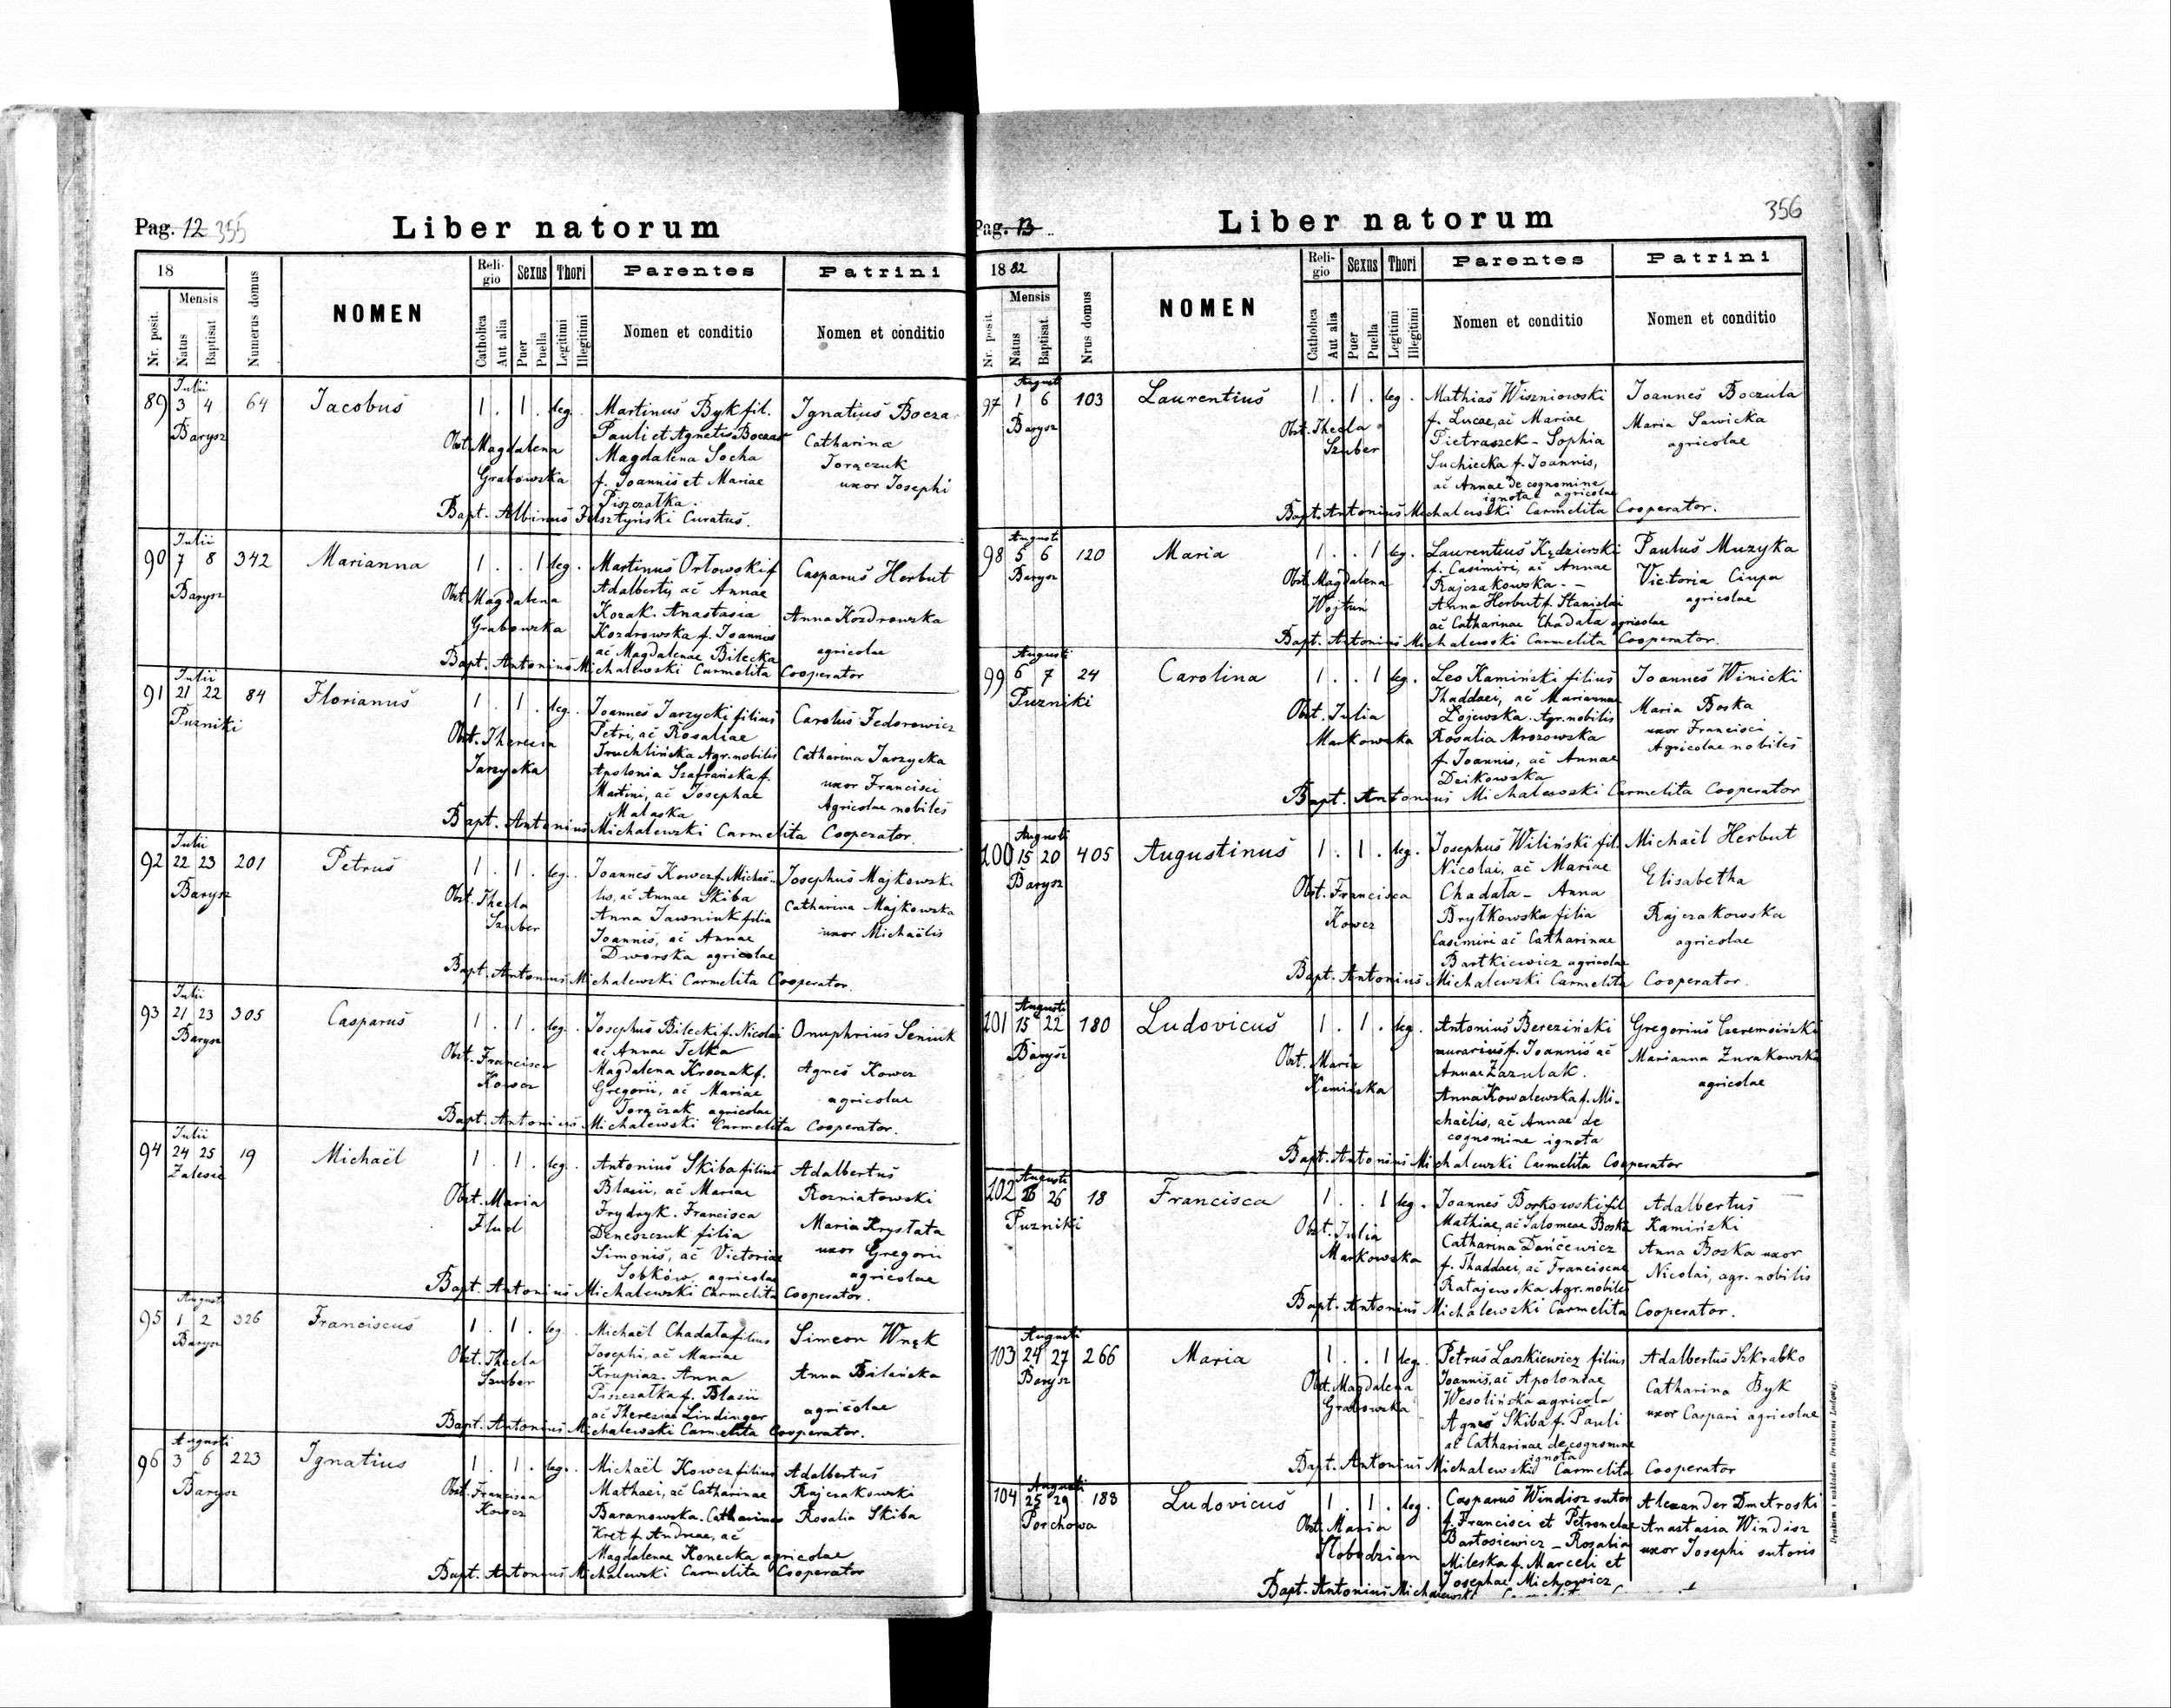 Pag. 12 355
Liber natorum
18
Nr. posit.
Mensis
Natus
Baptisat
Numerus domus
NOMEN
Religio
Catholica
Aut alia
Sexus
Puer
Puella
Thori
Legitimi
Illegitimi
Parentes
Nomen et conditio
Patrini
Nomen et conditio
89
Julii
3 4
Barysz
64
Jacobus
1 . 1 . leg.
Obst. Magdalena
Grabowska
Martinus Byk fil.
Pauli et Agnetis
Magdalena Socha
f. Joannis et Mariae
Piszczatka
Ignatius
Catharina
Torączuk
uxor Josephi
Bapt. Albinus Felsztyński Curatus.
90
Julii
7 8
Barysz
342
Marianna
1 . . 1 leg.
Obst. Magdalena
Grabowska
Martinus Orłowski f
Adalberti, ac Annae
Kozak. Anastasia
Kozdrowska f. Joannis
ac Magdalenae Bilecka
Casparus Herbut
Anna Kozdrowska
agricolae
Bapt. Antonius Michalewski Carmelita Cooperator
91
Julii
21 22
Puzniki
84
Florianus
1 . 1 . leg.
Obst. Theresia
Jarzycka
Joannes Jarzycki filius
Petri, ac Rosaliae
Truchlińska Agr. nobilis
Apolonia Szafrańska f.
Martini, ac Josephae
Malaska
Carolus Fedorowicz
Catharina Jarzycka
uxor Francisci
Agricolae nobiles
Bapt. Antonius Michalewski Carmelita Cooperator.
92
Julii
22 23
Barysz
201
Petrus
1 . 1 . leg.
Obst. Thecla
Szuber
Joannes Kowcz f. Michaë-
lis, ac Annae Skiba
Anna Jawniuk filia
Joannis, ac Annae
Dworska agricolae
Josephus Majkowski
Catharina Majkowska
uxor Michaëlis
Bapt. Antonius Michalewski Carmelita Cooperator.
93
Julii
21 23
Barysz
305
Casparus
1 . 1 . leg.
Obst. Francisca
Kowcz
Josephus Bilecki f. Nicolai
ac Annae Telka
Magdalena Kroczak f.
Gregorii, ac Mariae
Torączak agricolae
Onuphrius Seniuk
Agnes Kowcz
agricolae
Bapt. Antonius Michalewski Carmelita Cooperator.
94
Julii
24 25
Zalesie
19
Michaël
1 . 1 . leg.
Obst. Maria
Flud
Antonius Skiba filius
Blasii, ac Mariae
Frydryk. Francisca
Deneszczuk filia
Simonis, ac Victoriae
Sobków agricolae
Adalbertus
Rozniatowski
Maria Krystata
uxor Gregorii
agricolae
Bapt. Antonius Michalewski Carmelita Cooperator.
95
Augusti
1 2
Barysz
326
Franciscus
1 . 1 . leg.
Obst. Thecla
Szuber
Michaël Chadata filius
Josephi, ac Mariae
Krupiaz. Anna
Piszczatka f. Blasii
ac Theresiae Lindinger
Simeon Wnęk
Anna Bilańska
agricolae
Bapt. Antonius Michalewski Carmelita Cooperator.
96
Augusti
3 6
Barysz
223
Ignatius
1 . 1 . leg.
Obst. Francisca
Kowcz
Michaël Kowcz filius
Mathaei, ac Catharinae
Baranowska. Catharina
Kret f. Andreae, ac
Magdalenae Konecka agricolae
Adalbertus
Rajczakowski
Rosalia Skiba
Bapt. Antonius Michalewski Carmelita Cooperator
Pag. 13
Liber natorum
356
18 82
Nr. posit.
Mensis
Natus
Baptisat.
Nrus domus
NOMEN
Religio
Catholica
Aut alia
Sexus
Puer
Puella
Thori
Legitimi
Illegitimi
Parentes
Nomen et conditio
Patrini
Nomen et conditio
97
Augusti
1 6
Barysz
103
Laurentius
1 . 1 . leg.
Obst. Thecla
Szuber
Mathias Wiszniowski
f. Lucae, ac Mariae
Pietraszek - Sophia
Suchiecka f. Joannis,
ac Annae de cognomine
ignota agricolae
Joannes Boczula
Maria Sawicka
agricolae
Bapt. Antonius Michalewski Carmelita Cooperator.
98
Augusti
5 6
Barysz
120
Maria
1 . . 1 leg.
Obst. Magdalena
Wojtuń
Laurentius Kędzierski
f. Casimiri, ac Annae
Rajczakowska - -
Anna Herbut f. Stanislai
ac Catharinae Chadata agricolae
Paulus Muzyka
Victoria Ciupa
agricolae
Bapt. Antonius Michalewski Carmelita Cooperator.
99
Augusti
6 7
Puzniki
24
Carolina
1 . . 1 leg.
Obst. Julia
Markowska
Leo Kamiński filius
Thaddaei, ac Mariannae
Łojewska. Agr. nobilis
Rosalia Mrozowska
f. Joannis, ac Annae
Deikowska
Joannes Winicki
Maria Boska
uxor Francisci
Agricolae nobiles
Bapt. Antonius Michalewski Carmelita Cooperator
100
Augusti
15 20
Barysz
405
Augustinus
1 . 1 . leg.
Obst. Francisca
Kowcz
Josephus Wiliński fil.
Nicolai, ac Mariae
Chadata - Anna
Brytkowska filia
Casimiri ac Catharinae
Bartkiewicz agricolae
Michaël Herbut
Elisabetha
Rajczakowska
agricolae
Bapt. Antonius Michalewski Carmelita Cooperator.
101
Augusti
15 22
Barysz
180
Ludovicus
1 . 1 . leg.
Obst. Maria
Kamińska
Antonius Bereziński
murarius f. Joannis ac
Annae Zazulak.
Anna Kowalewska f. Mi-
chaëlis, ac Annae de
cognomine ignota
Gregorius Czeremsiński
Marianna Zurakowska
agricolae
Bapt. Antonius Michalewski Carmelita Cooperator
102
Augusti
26
Puzniki
18
Francisca
1 . . 1 leg.
Obst. Julia
Markowska
Joannes Borkowski fil
Mathiae, ac Salomeae Boska
Catharina Dańczewicz
f. Thaddaei, ac Franciscae
Ratajewska Agr. nobiles
Adalbertus
Kamiński
Anna Boska uxor
Nicolai, agr. nobilis
Bapt. Antonius Michalewski Carmelita Cooperator.
103
Augusti
24 27
Barysz
266
Maria
1 . . 1 leg.
Obst. Magdalena
Grabowska
Petrus Laszkiewicz filius
Joannis, ac Apoloniae
Wesolińska agricola
Agnes Skiba f. Pauli
ac Catharinae de cognomine
ignota
Adalbertus Szkrabko
Catharina Byk
uxor Caspari agricolae
Bapt. Antonius Michalewski Carmelita Cooperator
104
Augusti
25 29
Porchowa
183
Ludovicus
1 . 1 . leg.
Obst. Maria
Słobodzian
Casparus Windisz sutor
f. Francisci et Petronelae
Bartosiewicz - Rosalia
Mileska f. Marceli et
Josephae Michowicz
Alexander Dmetroski
Anastasia Windisz
uxor Josephi sutoris
Bapt. Antonius Michalewski
Drukiem i nakładem Drukarni Ludowej.